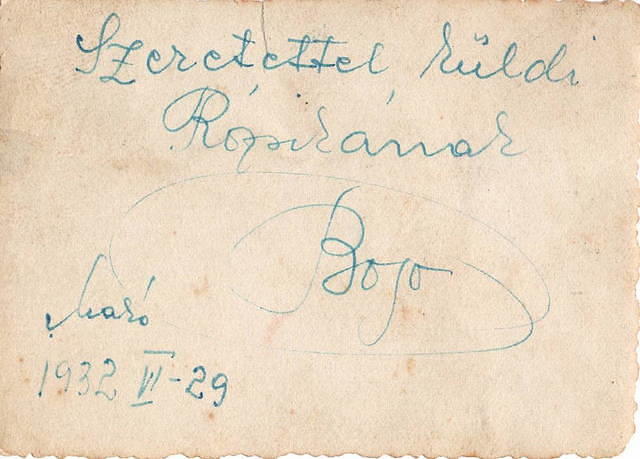 Szeretettel küldi
Rózsikának
Bojo
Makó
1932 VI-29